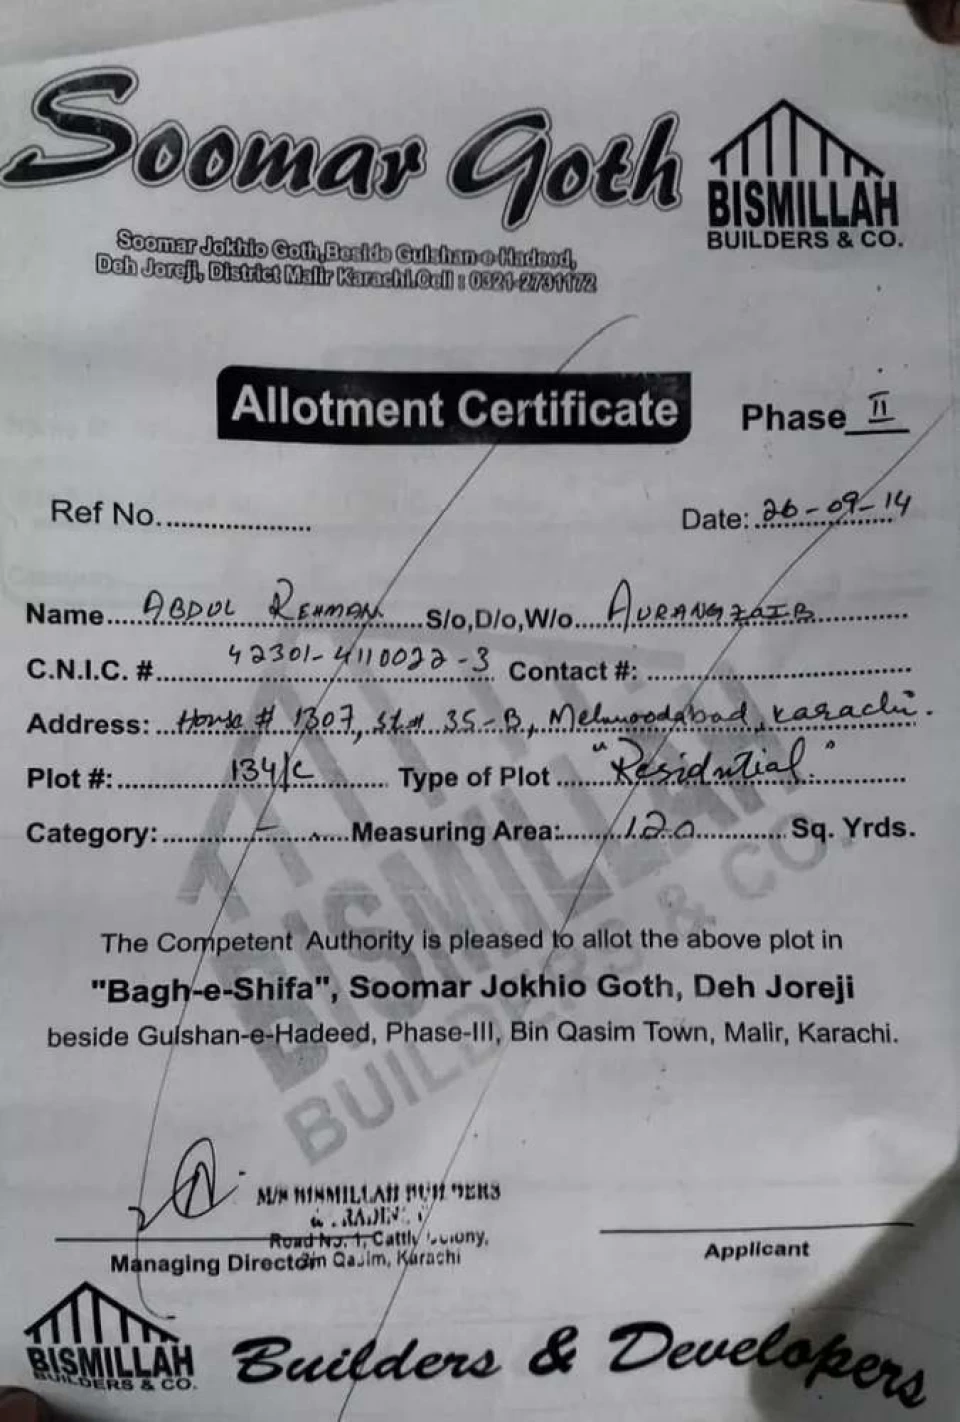 Soomar Goth
BISMILLAH
BUILDERS & CO.
Soomar Jokhio Goth,Beside Gulshan-e-Hadeed,
Deh Joreji, District Malir Karachi.Cell : 0321-2731172
Allotment Certificate
Phase II
Ref No.
Date: 26-09-14
Name ABDUL REHMAN S/o,D/o,W/o AURANGZAIB
C.N.I.C. # 42301-4110022-3 Contact #:
Address: House # 1307, St# 35-B, Mehmoodabad, Karachi.
Plot #: 134/C Type of Plot "Residntial"
Category: - Measuring Area: 120 Sq. Yrds.
The Competent Authority is pleased to allot the above plot in
"Bagh-e-Shifa", Soomar Jokhio Goth, Deh Joreji
beside Gulshan-e-Hadeed, Phase-III, Bin Qasim Town, Malir, Karachi.
BISMILLAH
BUILDERS & CO.
M/S BISMILLAH BUILDERS
Road No. 1, Cattle Colony,
Bin Qasim, Karachi
Managing Director
Applicant
BISMILLAH
BUILDERS & CO.
Builders & Developers